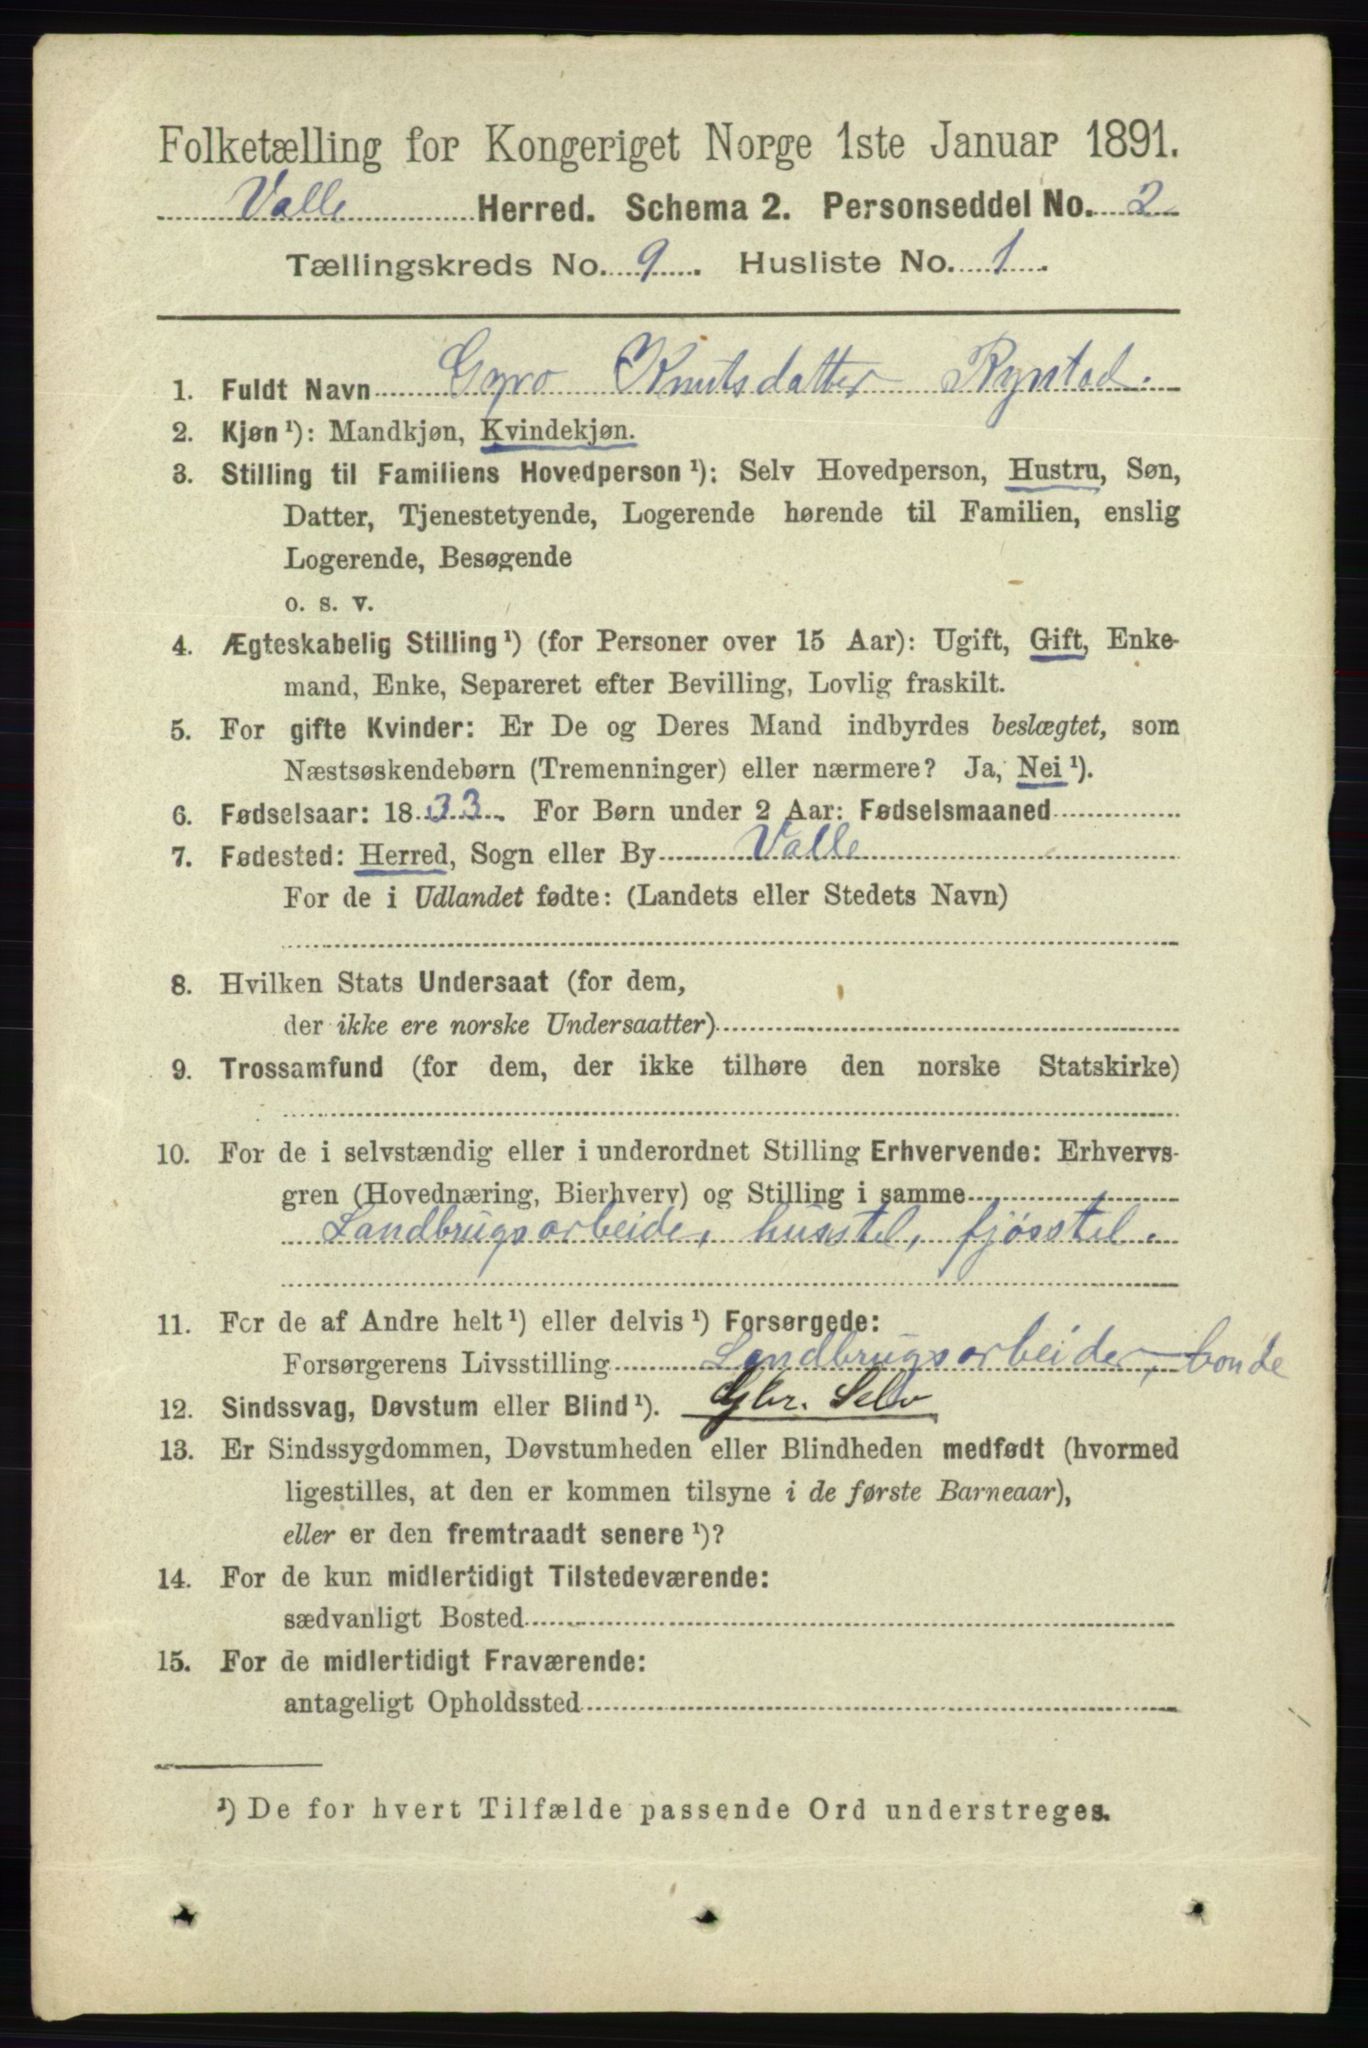 Folketælling for Kongeriget Norge 1ste Januar 1891.
Valle Herred. Schema 2. Personseddel No. 2
Tællingskreds No. 9. Husliste No. 1.
1. Fuldt Navn Gyro Knutsdatter Rystad.
2. Kjøn ¹): Mandkjøn, Kvindekjøn.
3. Stilling til Familiens Hovedperson ¹): Selv Hovedperson, Hustru, Søn,
Datter, Tjenestetyende, Logerende hørende til Familien, enslig
Logerende, Besøgende
o. s. v.
4. Ægteskabelig Stilling ¹) (for Personer over 15 Aar): Ugift, Gift, Enke-
mand, Enke, Separeret efter Bevilling, Lovlig fraskilt.
5. For gifte Kvinder: Er De og Deres Mand indbyrdes beslægtet, som
Næstsøskendebørn (Tremenninger) eller nærmere? Ja, Nei ¹).
6. Fødselsaar: 1833. For Børn under 2 Aar: Fødselsmaaned
7. Fødested: Herred, Sogn eller By Valle
For de i Udlandet fødte: (Landets eller Stedets Navn)
8. Hvilken Stats Undersaat (for dem,
der ikke ere norske Undersaatter)
9. Trossamfund (for dem, der ikke tilhøre den norske Statskirke)
10. For de i selvstændig eller i underordnet Stilling Erhvervende: Erhvervs-
gren (Hovednæring, Bierhverv) og Stilling i samme
Landbrugsarbeide, husstel, fjøsstel.
11. For de af Andre helt ¹) eller delvis ¹) Forsørgede:
Forsørgerens Livsstilling Landbrugsarbeider, bonde
12. Sindssvag, Døvstum eller Blind ¹). Gbr. Selv
13. Er Sindssygdommen, Døvstumheden eller Blindheden medfødt (hvormed
ligestilles, at den er kommen tilsyne i de første Barneaar),
eller er den fremtraadt senere ¹)?
14. For de kun midlertidigt Tilstedeværende:
sædvanligt Bosted
15. For de midlertidigt Fraværende:
antageligt Opholdssted
¹) De for hvert Tilfælde passende Ord understreges.